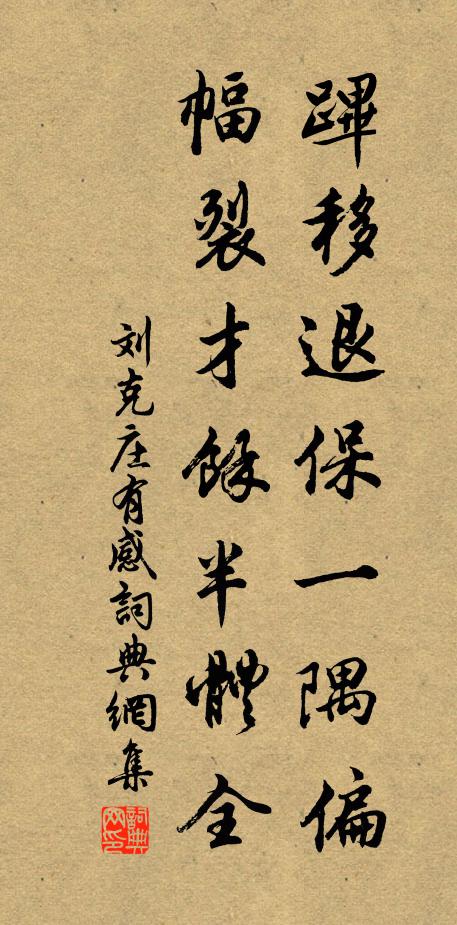 蹕移退保一隅偏
幅裂才餘半體全
刘克庄有感詞典網集
詞典网印